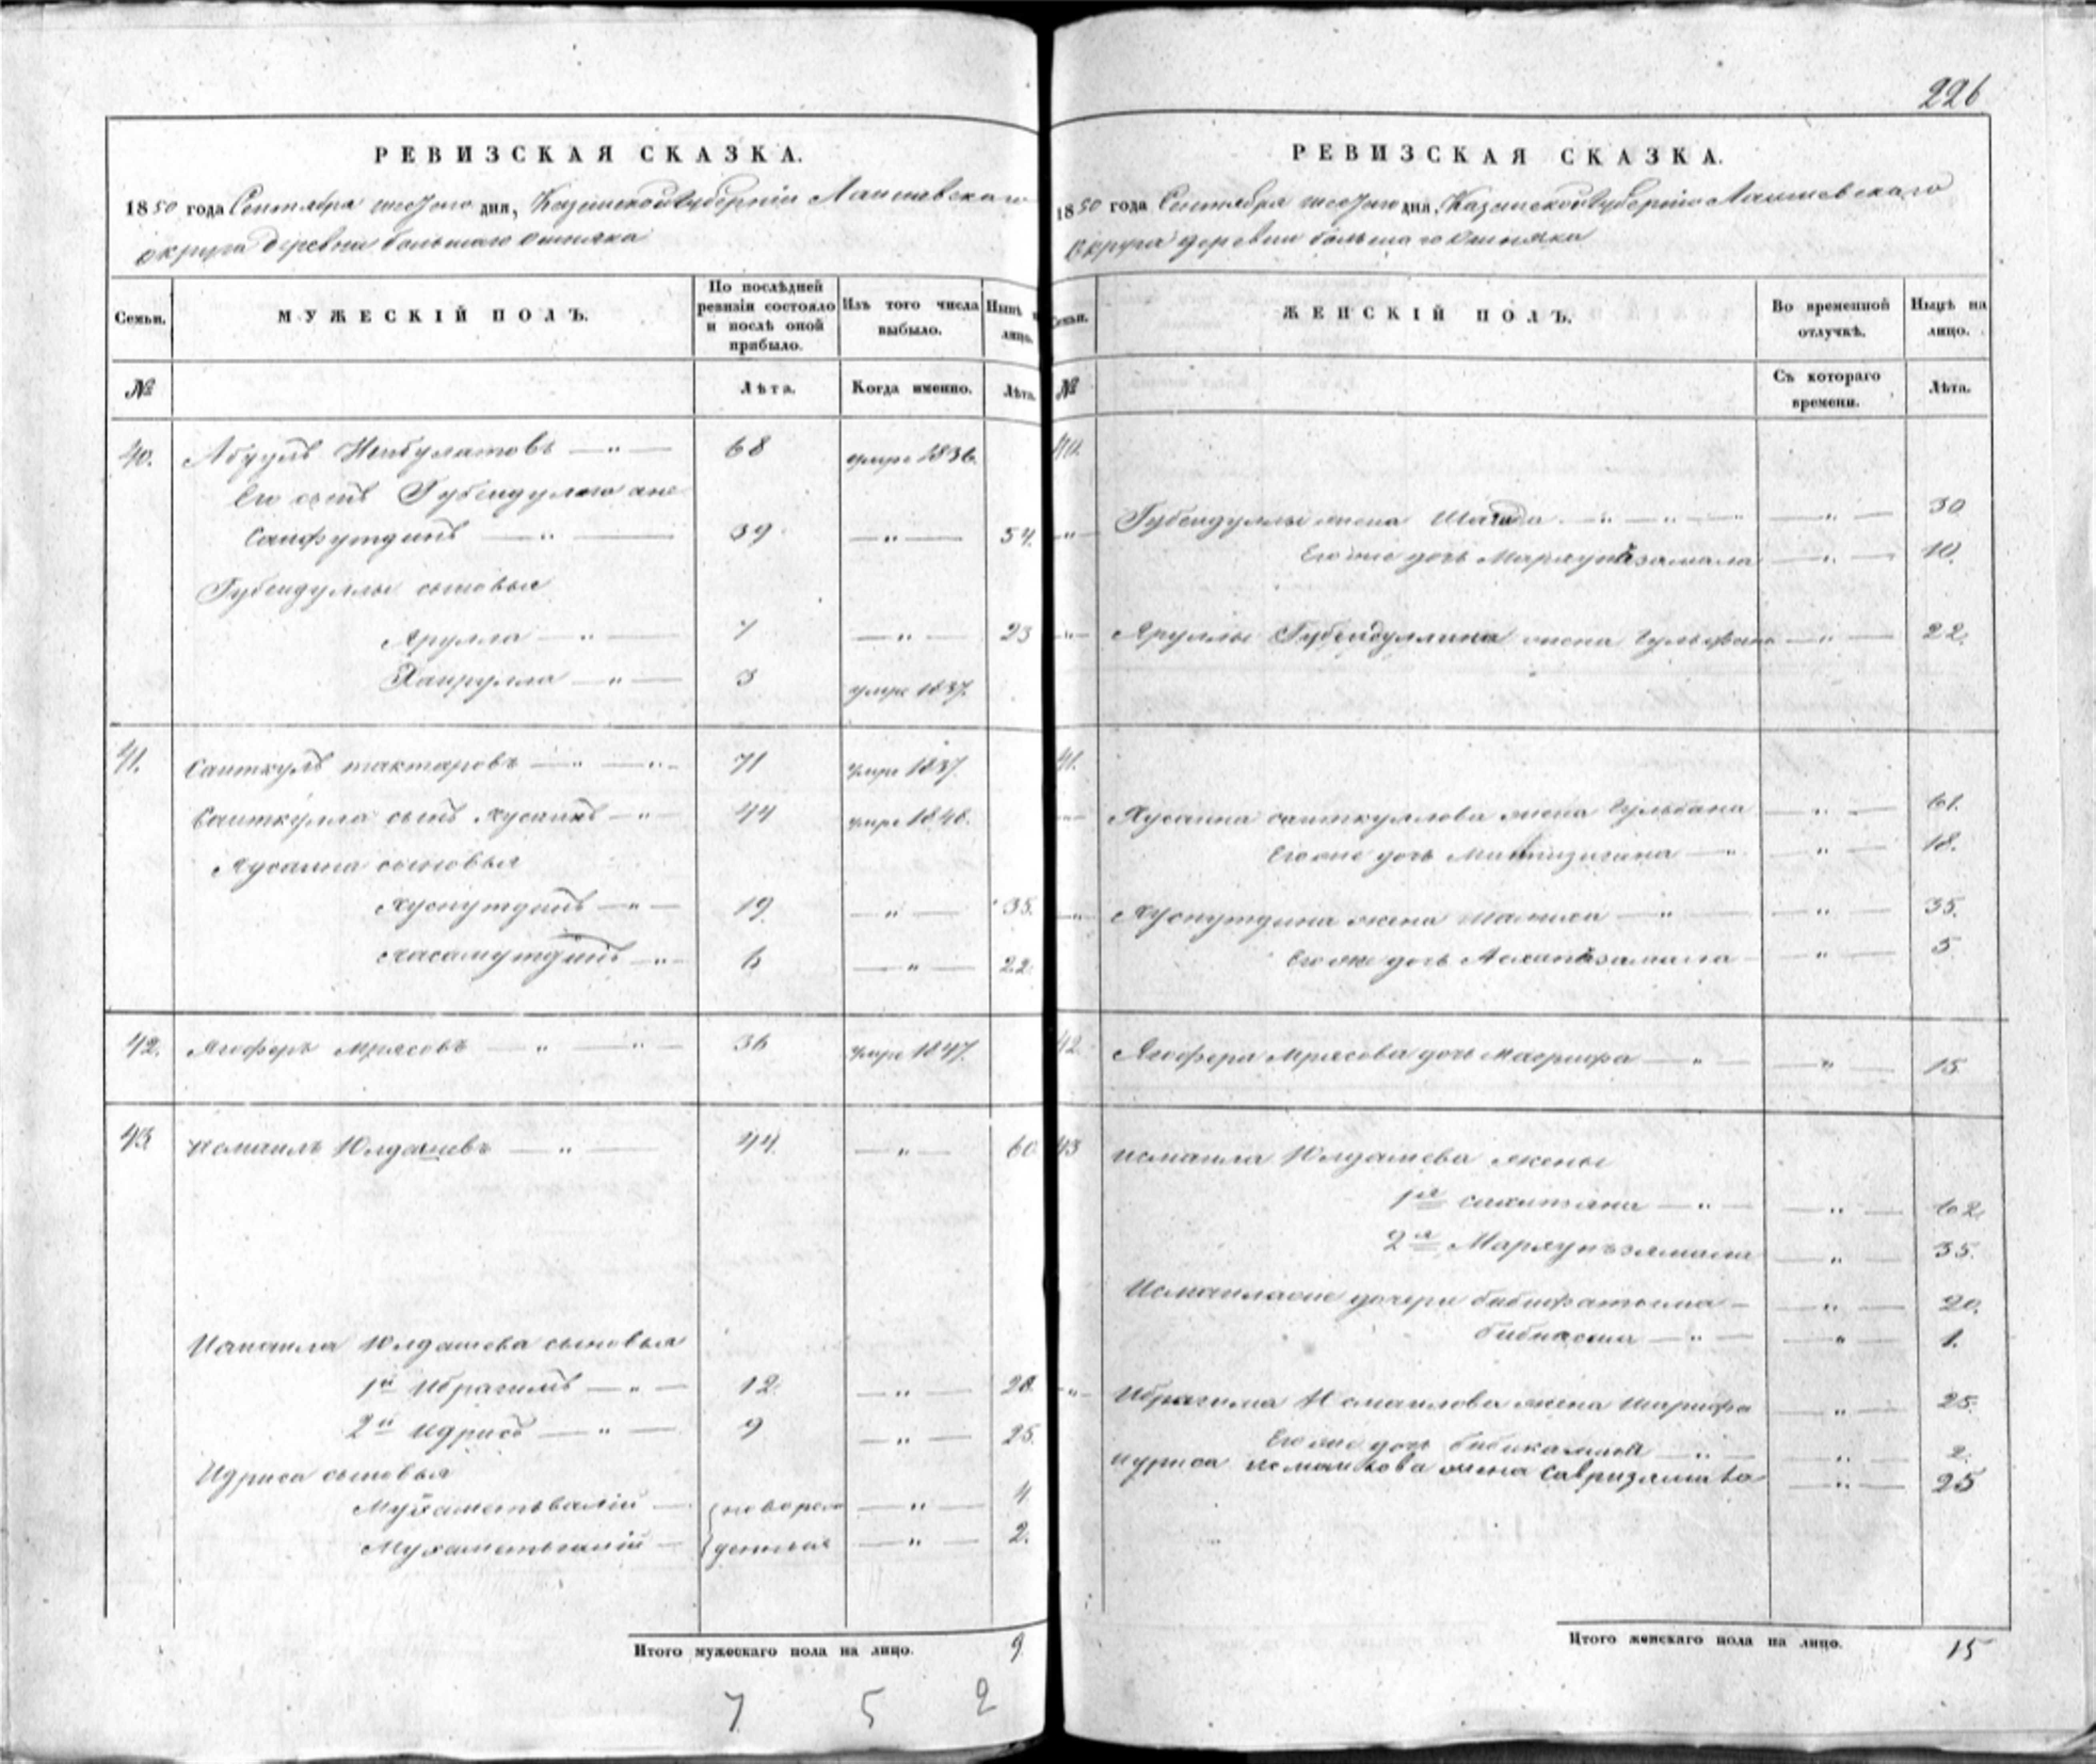 226
РЕВИЗСКАЯ СКАЗКА.
1850 года Сентября шестого дня, Казанской Губернии Лаишевского
округа деревни большаго Ошняка
Семьи.
МУЖЕСКІЙ ПОЛЪ.
По послѣдней ревизіи состояло и послѣ оной прибыло.
Изъ того числа выбыло.
Нынѣ на лицо.
№
Лѣта.
Когда именно.
Лѣта.
40. Абдулъ Ишбулатовъ — " — 68 умре 1836.
Его сынъ Губейдуллою он же
Сайфутдинъ — " — 39 — " — 54.
Губейдуллы сыновья
Ярулла — " — 7 — " — 23
Хайрулла — " — 3 умре 1837.
41. Саиткулъ тактаровъ — " — " — 71 умре 1837.
Саиткулла сынъ Хусаинъ — " 44 умре 1848.
Хусаина сыновья
Хуснутдинъ — " — 19 — " — 35.
Хасамутдинъ — " — 6 — " — 22.
42. Ягоферъ Мрясовъ — " — " — 36 умре 1847.
43 Исмаилъ Юлдашевъ — " — 44. — " — 60.
Исмаила Юлдашева сыновья
1й Ибрагимъ — " — 12. — " — 28.
2й Идрисъ — " — 9 — " — 25.
Идриса сыновья
Мухаметьвалій — новорож — " — 4.
Мухаметьгалій — денныя — " — 2.
Итого мужескаго пола на лицо. 9
7 5 2
РЕВИЗСКАЯ СКАЗКА.
1850 года Сентября шестого дня, Казанской Губернии Лаишевского
Округа деревни большаго Ошняка
Семьи.
ЖЕНСКІЙ ПОЛЪ.
Во временной отлучкѣ.
Нынѣ на лицо.
№
Съ котораго времени.
Лѣта.
40.
" Губейдуллы жена — " — " — " — " — 30
Его же дочь Марзуназамала — " — 10.
" Яруллы Губейдуллина жена — " — 22.
41.
Хусаина саиткуллова жена Гульбана — " — 61.
Его же дочь — " — " — 18.
" Хуснутдина жена — " — " — 35.
Его же дочь — " — 5
42. Ягофера Мрясова дочь Магруфа — " — — " — 15
43 Исмаила Юлдашева жены
1я — " — — " — 62.
2я Марзунъзямала " — 35.
Исмаила же дочери бибифатыма — — " — 20.
— " — — " — 1.
" Ибрагима Исмаилова жена Шарифа — " — 25.
Его же дочь бибикамал — " — — " — 2.
Идриса Исмаилова жена — " — 25
Итого женскаго пола на лицо. 15